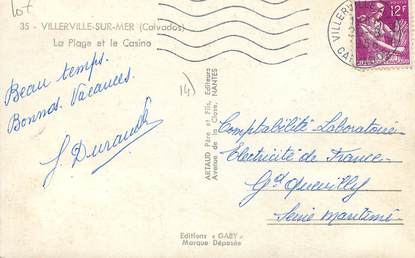 lot
35 - VILLERVILLE-SUR-MER (Calvados)
La Plage et le Casino
12F
VILLERV
CAL
Beau temps.
Bonnes Vacances.
J. Durand
14)
ARTAUD Père et Fils, Editeurs
Avenue de la Close, NANTES
Comptabilité Laboratoire
Electricité de France
Gd Quevilly
Seine Maritime
Editions « GABY »
Marque Déposée